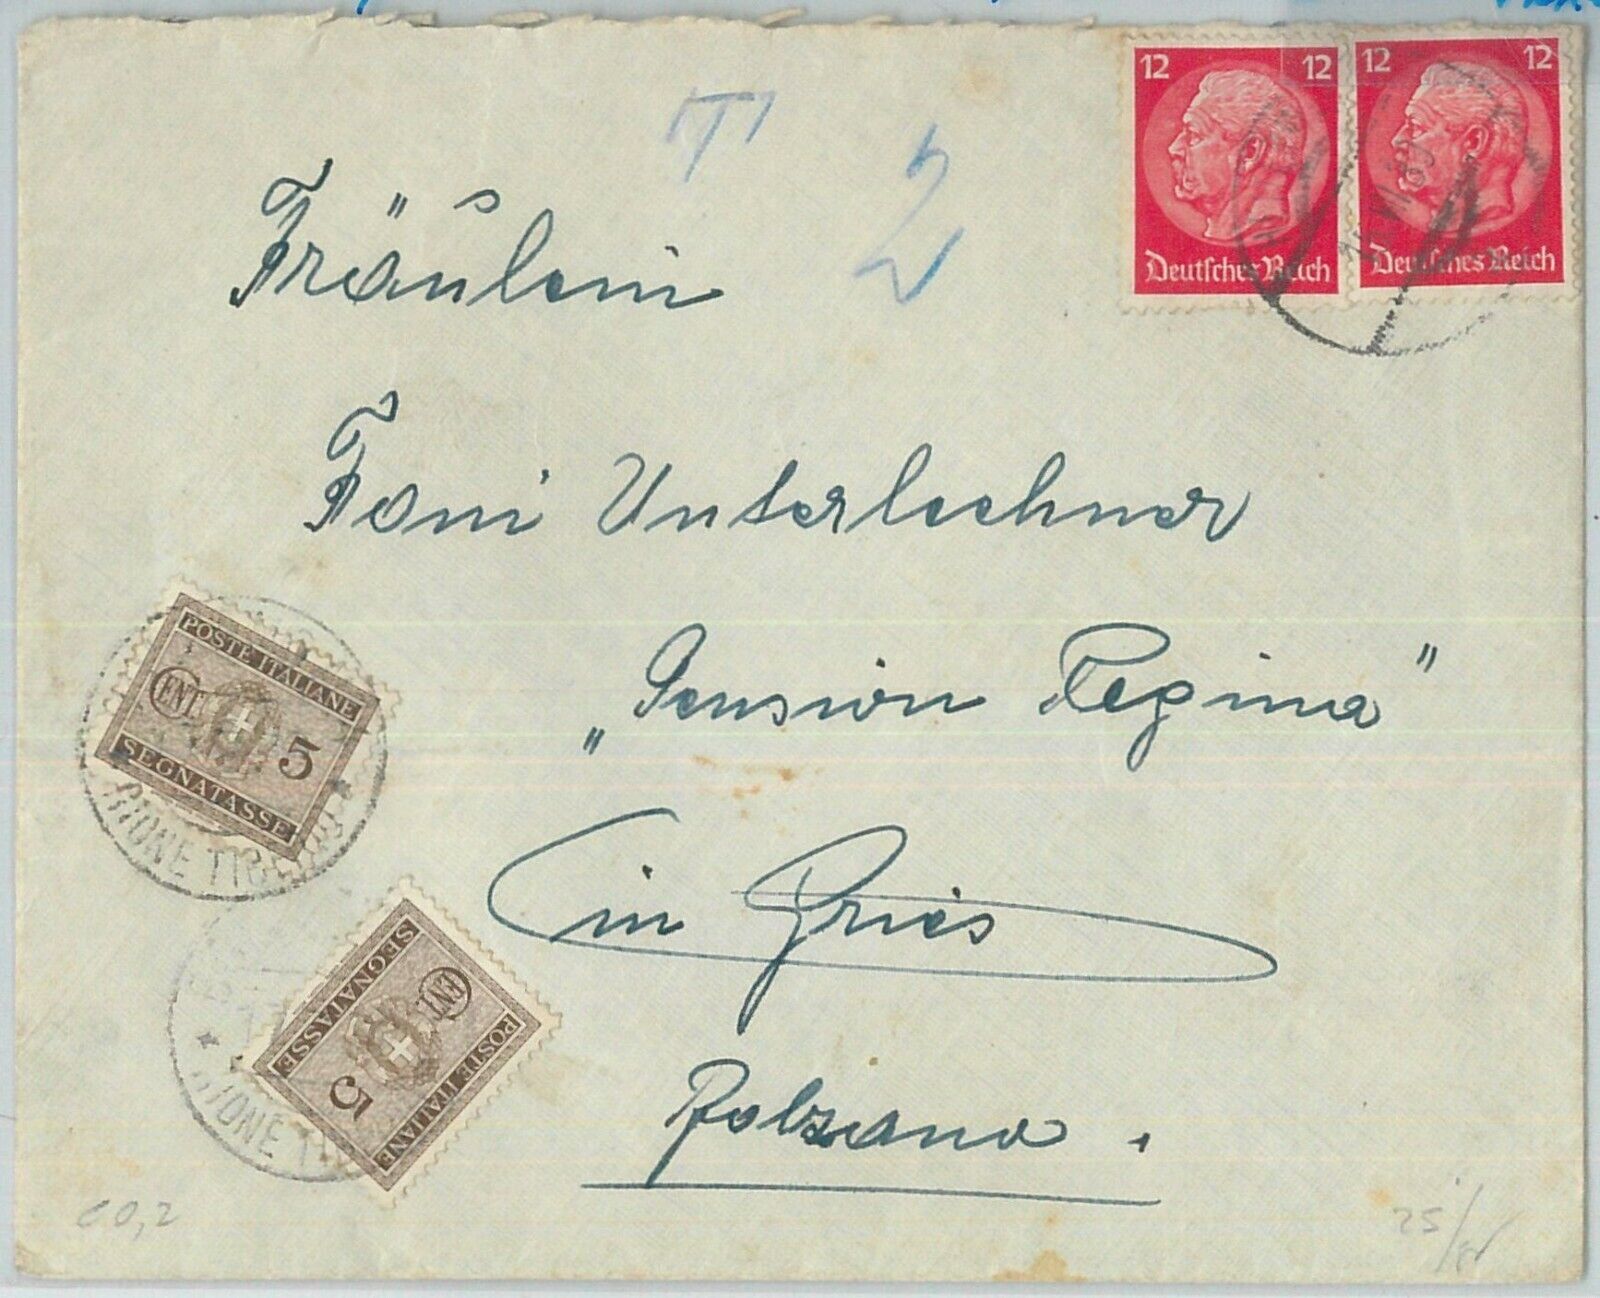 12 12
Deutsches Reich
12 12
Deutsches Reich
T
2
Fräulein
Toni Unterlechner
„Pension Regina"
in Gries
Bolzano.
POSTE ITALIANE
CENT. 5
SEGNATASSE
RIONE TIB
POSTE ITALIANE
CENT. 5
SEGNATASSE
RIONE TI
25/